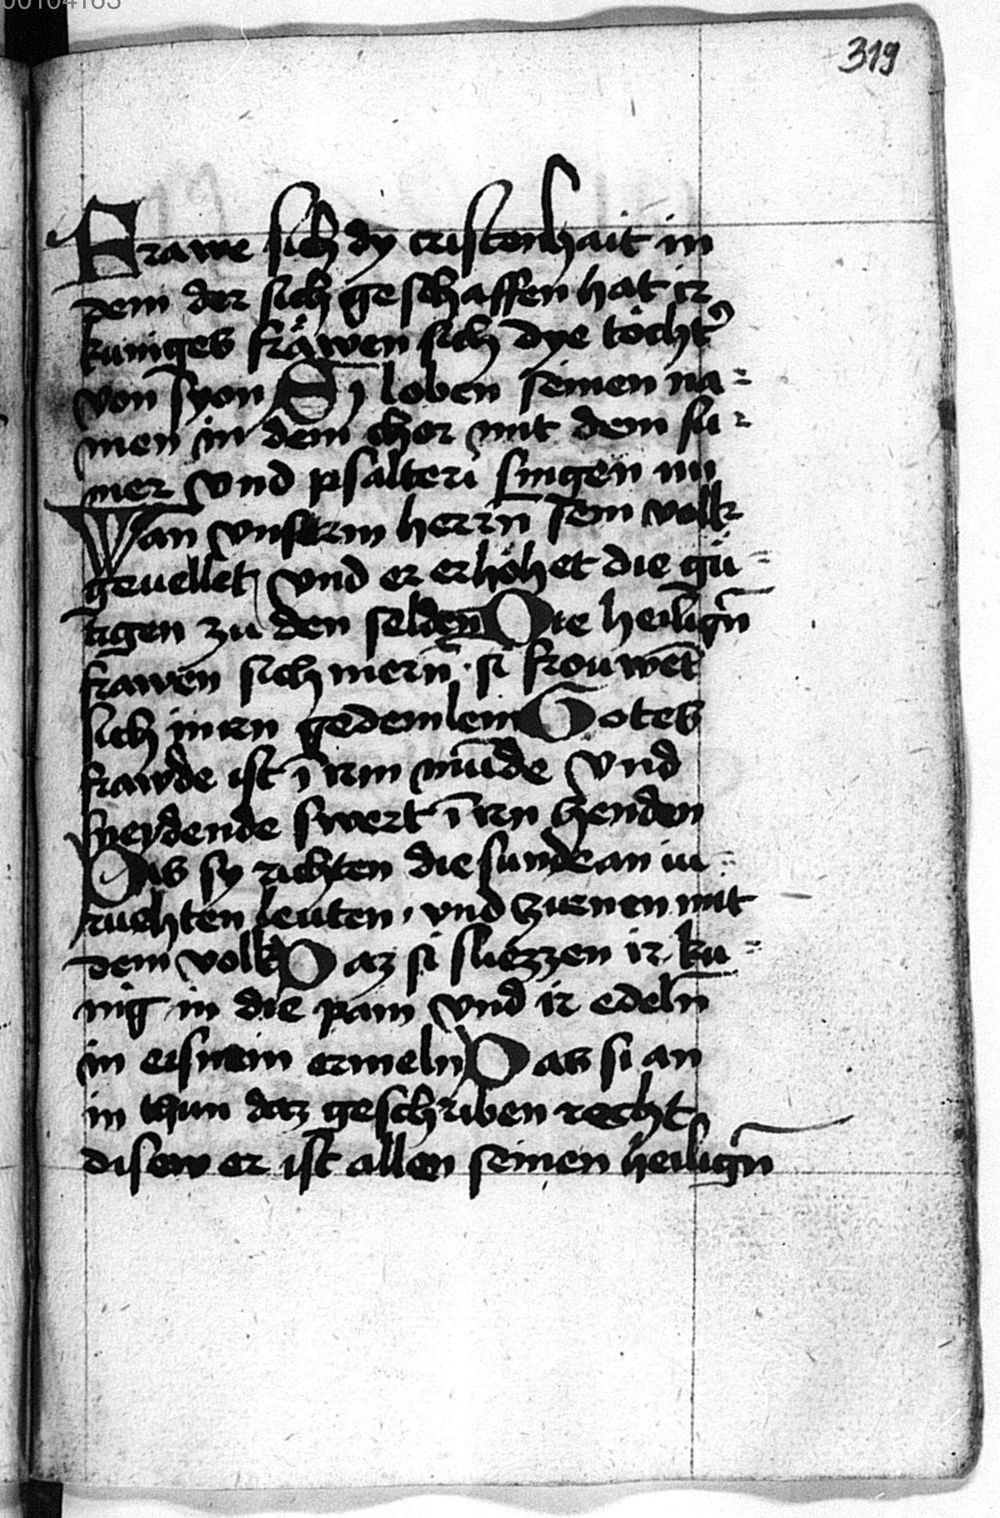 00104163
319
Frawe sich dy cristenhait in
dem der sich geschaffen hat ir
kuniges fräwen sich dye töcht'
von syon Sy loben seinen na-
men in dem chor mit dem su-
mer vnd psalteri singen im
Wan vnserm herrn sein volk
geuellet vnd er erhöhet die gü-
tigen zu den selden Die heilign̄
frawen sich mern̄ · si frouwēt
sich in irn gedemlein Gotes
frawde ist ī irm mūde vnd
sneydende swert ī irn henden
Das sy richten die sunde an in
ruchten leuten · vnd zurnen mit
dem volk Daz si sliezzen ir ku-
nig in die pain vnd ir edeln̄
in eisnein ermeln Das si an
in thun daz geschriben recht
disew er ist allen seinen heilign̄